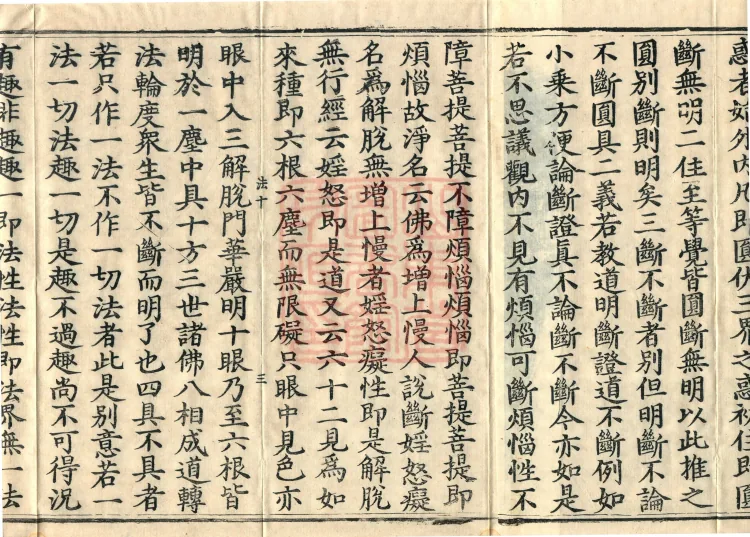 惑者如外内凡即圓伏三界之惑初住即圓
斷無明二住至等覺皆圓斷無明以此推之
圓別斷則明矣三斷不斷者別但明斷不論
不斷圓具二義若教道明斷證道不斷例如
小乘方便論斷證眞不論斷不斷今亦如是
若不思議觀内不見有煩惱可斷煩惱性不
障菩提菩提不障煩惱煩惱即菩提菩提即
煩惱故淨名云佛爲增上慢人說斷婬怒癡
名爲解脫無增上慢者婬怒癡性即是解脫
無行經云婬怒即是道又云六十二見爲如
來種即六根六塵而無限礙只眼中見色亦
法十 三
眼中入三解脫門華嚴明十眼乃至六根皆
明於一塵中具十方三世諸佛八相成道轉
法輪度衆生皆不斷而明了也四具不具者
若只作一法不作一切法者此是別意若一
法一切法趣一切是趣不過趣尚不可得況
有趣非趣趣一即法性法性即法界無一法